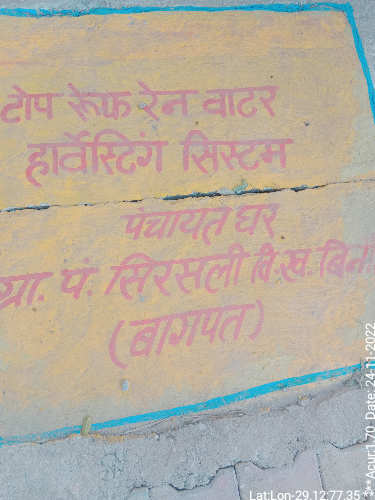 टोप रूफ रेन वाटर
हार्वेस्टिंग सिस्टम
पंचायत घर
ग्रा. पं. सिरसली वि.ख. बिन
(बागपत)
Lat:Lon-29.12:77.35
***Acur:1.70 Date: 24-11-2022